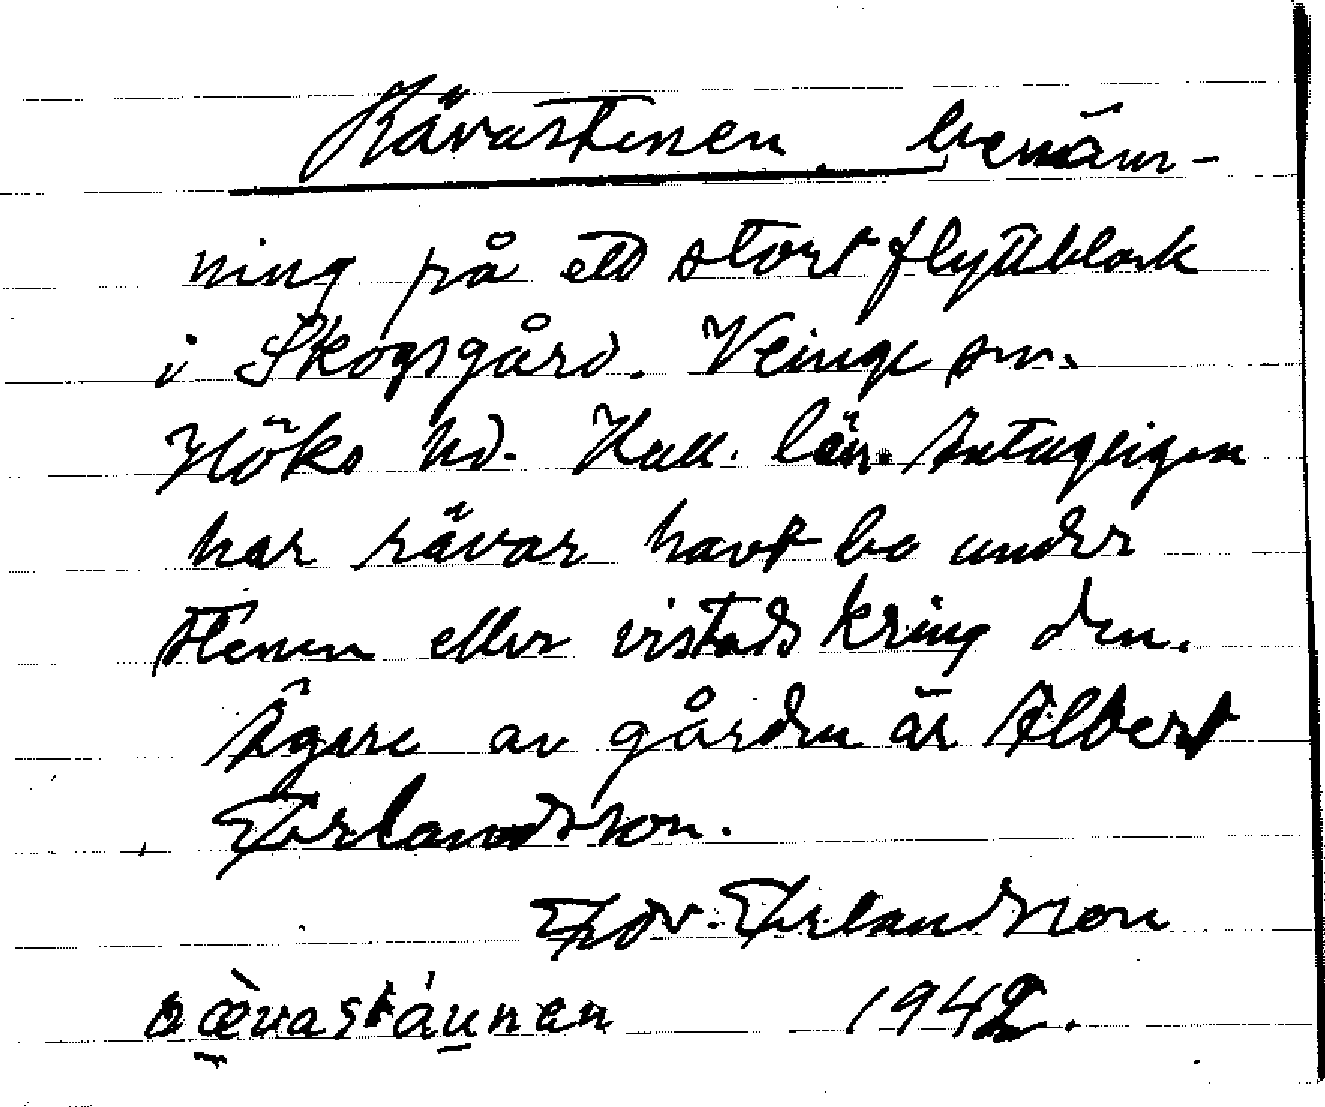 Rävastenen. benäm-
ning på ett stort flyttblock
i Skogsgård. Veinge sn.
Höks hd. Hall. län. Antagligen
har rävar havt bo under
stenen eller vistads kring den.
Ägare av gården är Albert
Erlandsson.
Edv. Erlandsson
1942.